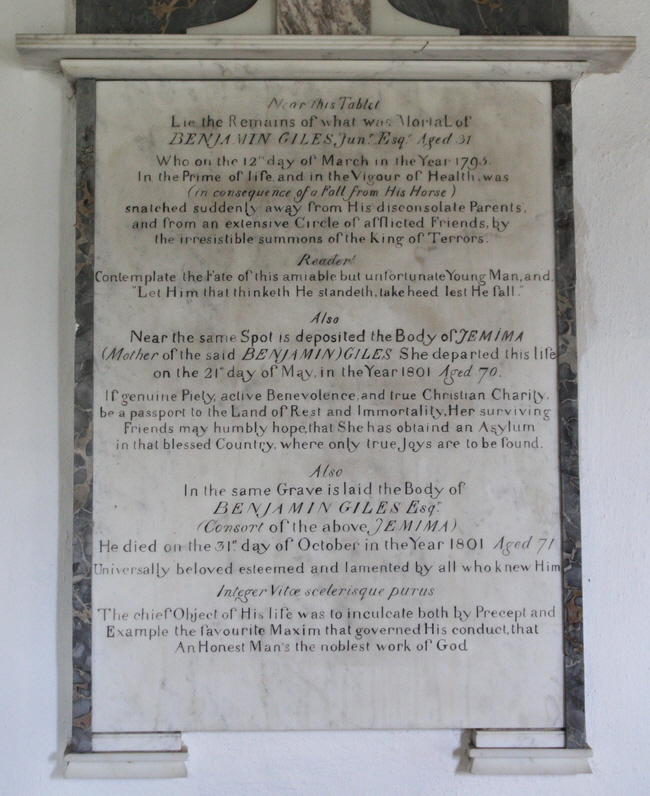 Near this Tablet
Lie the Remains of what was Mortal of
BENJAMIN GILES, Junr. Esqr. Aged 31
Who on the 12th day of March in the Year 1795.
In the Prime of life, and in the Vigour of Health, was
(in consequence of a Fall from His Horse)
snatched suddenly away from His disconsolate Parents,
and from an extensive Circle of afflicted Friends, by
the irresistible summons of the King of Terrors.
Reader!
Contemplate the Fate of this amiable but unfortunate Young Man, and,
"Let Him that thinketh He standeth, take heed lest He fall."
Also
Near the same Spot is deposited the Body of JEMIMA
(Mother of the said BENJAMIN) GILES She departed this life
on the 21st day of May, in the Year 1801 Aged 70.
If genuine Piety, active Benevolence, and true Christian Charity,
be a passport to the Land of Rest and Immortality, Her surviving
Friends may humbly hope, that She has obtaind an Asylum
in that blessed Country, where only true Joys are to be found.
Also
In the same Grave is laid the Body of
BENJAMIN GILES Esqr.
(Consort of the above JEMIMA)
He died on the 31st day of October in the Year 1801 Aged 71
Universally beloved esteemed and lamented by all who knew Him
Integer Vitæ scelerisque purus
The chief Object of His life was to inculcate both by Precept and
Example the favourite Maxim that governed His conduct, that
An Honest Man's the noblest work of God